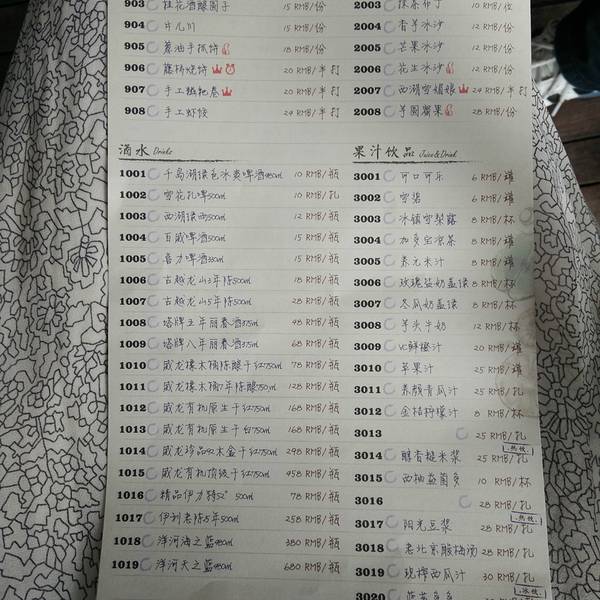 903 桂花酒酿圆子 15 RMB/份
904 片儿川 15 RMB/份
905 葱油手抓饼 18 RMB/份
906 藤椒烧饼 20 RMB/半打
907 手工糍粑卷 20 RMB/半打
908 手工虾饺 24 RMB/半打
2003 抹茶布丁 10 RMB/位
2004 香芋冰沙 15 RMB/份
2005 芒果冰沙 15 RMB/份
2006 花生冰沙 15 RMB/份
2007 西湖雪媚娘 24 RMB/半打
2008 芋圆蜜果 28 RMB/份
酒水 Drinks
1001 千岛湖绿色冰爽啤酒480ml 10 RMB/瓶
1002 雪花扎啤500ml 10 RMB/扎
1003 西湖绿雨500ml 12 RMB/瓶
1004 百威啤酒500ml 15 RMB/瓶
1005 喜力啤酒330ml 15 RMB/瓶
1006 古越龙山3年陈500ml 18 RMB/瓶
1007 古越龙山5年陈500ml 28 RMB/瓶
1008 塔牌五年丽春酒375ml 48 RMB/瓶
1009 塔牌八年丽春酒375ml 68 RMB/瓶
1010 威龙橡木桶陈酿干红750ml 78 RMB/瓶
1011 威龙橡木桶7年陈酿750ml 128 RMB/瓶
1012 威龙有机原生干红750ml 168 RMB/瓶
1013 威龙有机原生干白750ml 168 RMB/瓶
1014 威龙珍品92木盒干红750ml 298 RMB/瓶
1015 威龙有机顶级干红750ml 458 RMB/瓶
1016 精品伊力特52° 500ml 78 RMB/瓶
1017 伊利老陈5年500ml 258 RMB/瓶
1018 洋河海之蓝480ml 380 RMB/瓶
1019 洋河天之蓝480ml 680 RMB/瓶
果汁饮品 Juice&Drink
3001 可口可乐 6 RMB/罐
3002 雪碧 6 RMB/罐
3003 冰镇雪梨露 8 RMB/杯
3004 加多宝凉茶 8 RMB/罐
3005 粟米汁 8 RMB/罐
3006 玫瑰装奶盖绿 8 RMB/杯
3007 冬瓜奶盖绿 8 RMB/杯
3008 芋头牛奶 12 RMB/杯
3009 VC鲜橙汁 20 RMB/罐
3010 苹果汁 25 RMB/罐
3011 养颜青瓜汁 25 RMB/扎
3012 金桔柠檬汁 8 RMB/杯
3013 25 RMB/扎
3014 醇香糙米浆 25 RMB/扎 热饮
3015 西柚益菌多 10 RMB/杯
3016 28 RMB/扎
3017 阳光豆浆 28 RMB/扎 热饮
3018 老北京酸梅汤 28 RMB/扎
3019 现榨西瓜汁 30 RMB/扎
3020 冰饮